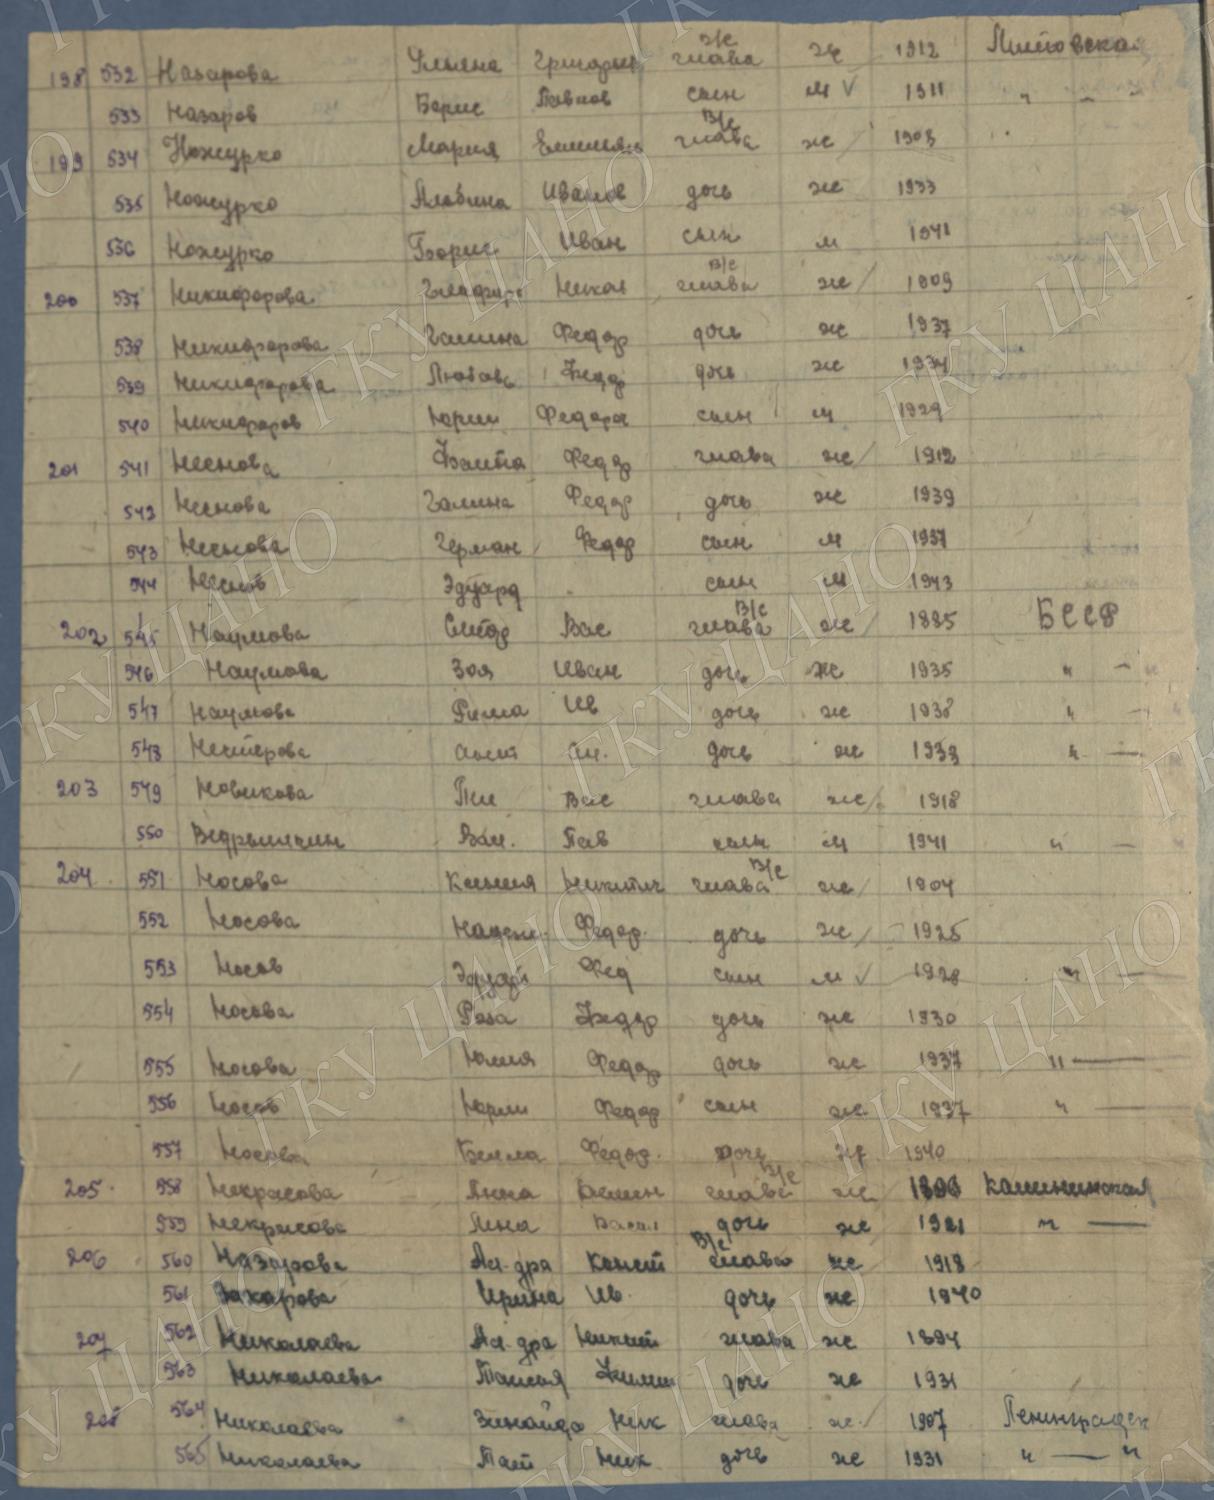 198 532 Назарова Ульяна Григорьев ж/с глава ж 1912 Литовская
533 Назаров Борис Павлов сын м √ 1911 " - "
199 534 Ножурко Мария Емельян в/с глава ж 1903 "
535 Ножурко Альбина Иванов дочь ж 1933
536 Ножурко Борис Иван сын м 1941
200 537 Никифорова Глафира Никол в/с глава ж 1909
538 Никифорова Галина Федор дочь ж 1937
539 Никифорова Любовь Федор дочь ж 1934
540 Никифоров Юрий Федоров сын м 1929
201 541 Неснова Федор глава ж 1912
542 Неснова Галина Федор дочь ж 1939
543 Неснова Герман Федор сын м 1937
544 Неснов Эдуард сын м 1943
202 545 Наумова Вас в/с глава ж 1885 БССР
546 Наумова Зоя Иван дочь ж 1935 " - "
547 Наумова Рима Ив дочь ж 1938 " - "
548 Нестерова дочь ж 1933 " —
203 549 Новикова Вас глава ж 1918
550 Пав сын м 1941 " — "
204 551 Носова Ксения Никитич глава в/с ж 1904
552 Носова Надеж. Федор. дочь ж 1925
553 Носов Эдуард Фед сын м √ 1928 " —
554 Носова Роза Федор дочь ж 1930
555 Носова Юлия Федор дочь ж 1937 " —
556 Носов Юрий Федор сын ж 1937 " —
557 Носова Белла Федор. дочь ж 1940
205. 558 Некрасова Анна глава в/с ж 1896 Калининская
559 Некрасова Анна Васил дочь ж 1921 " —
206 560 Назарова Ал-дра Конст в/с глава ж 1918
561 Захарова Ирина Ив. дочь ж 1940
207 562 Николаева Ал-дра Никит глава ж 1894
563 Николаева Таисия дочь ж 1931
208 564 Николаева Зинаида Ник глава ж 1907 Ленинградск
565 Николаева Тат Ник дочь ж 1931 " — "
ГКУ ЦАНО